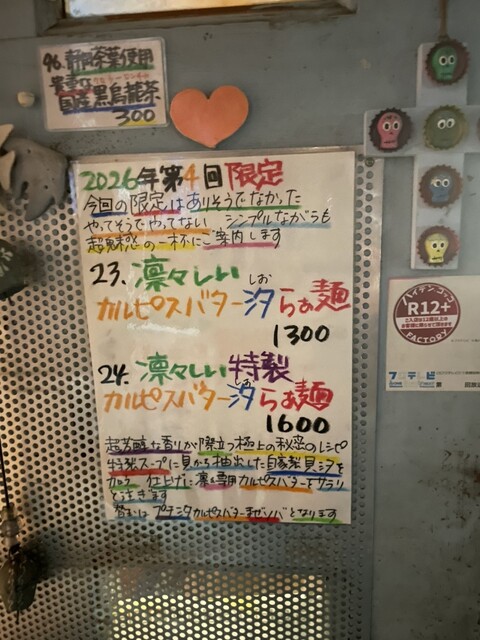 96. 静岡茶葉使用
貴重な
国産黒烏龍茶
300
2026年第4回限定
今回の限定はありそうでなかった
やってそうでやってない シンプルながらも
超魅惑の一杯にご案内します
23. 凛々しい
カルピスバター汐らぁ麺
しお
1300
24. 凛々しい特製
カルピスバター汐らぁ麺
しお
1600
超芳醇な香りが際立つ極上の秘密のレシピ
特製スープに貝から抽出した自家製貝ダシを
仕上げに凛々専用カルピスバターをサラリ
と溶きます
替わはプチニタカルピスバターまぜソバとなります
ハイテンション
R12+
FACTORY
フジテレビ